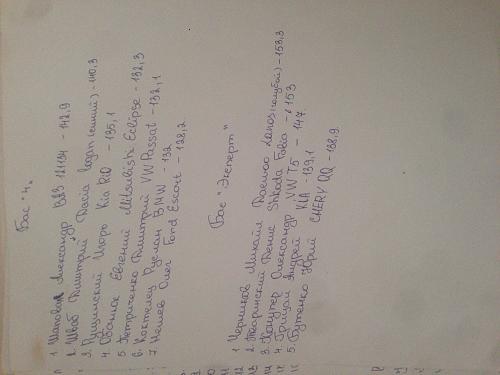 Бас "4"
1 Шаповал Александр ВАЗ 21134 - 142,9
2. Швб Дмитрий Dacia logan (синий) - 140,3
3. Пушинский Игорь Kia Rio - 135,1
4. Евгений Mitsubishi Eclipse - 132,3
5 Петриченко Дмитрий VW Passat - 132,1
6. Коктелец Руслан BMW - 132
7 Нешев Олег Ford Escort - 128,2
Бас "Эксперт"
1 Черников Михайл Daewoo Lanos (голубой) - 158,3
2. Тваринский Денис Shkoda Fabia - 153
3. Александр VW T5 - 147
4. Грицай Андрей KIA - 139,1
5. Бутенко Юрий CHERY QQ - 138,9